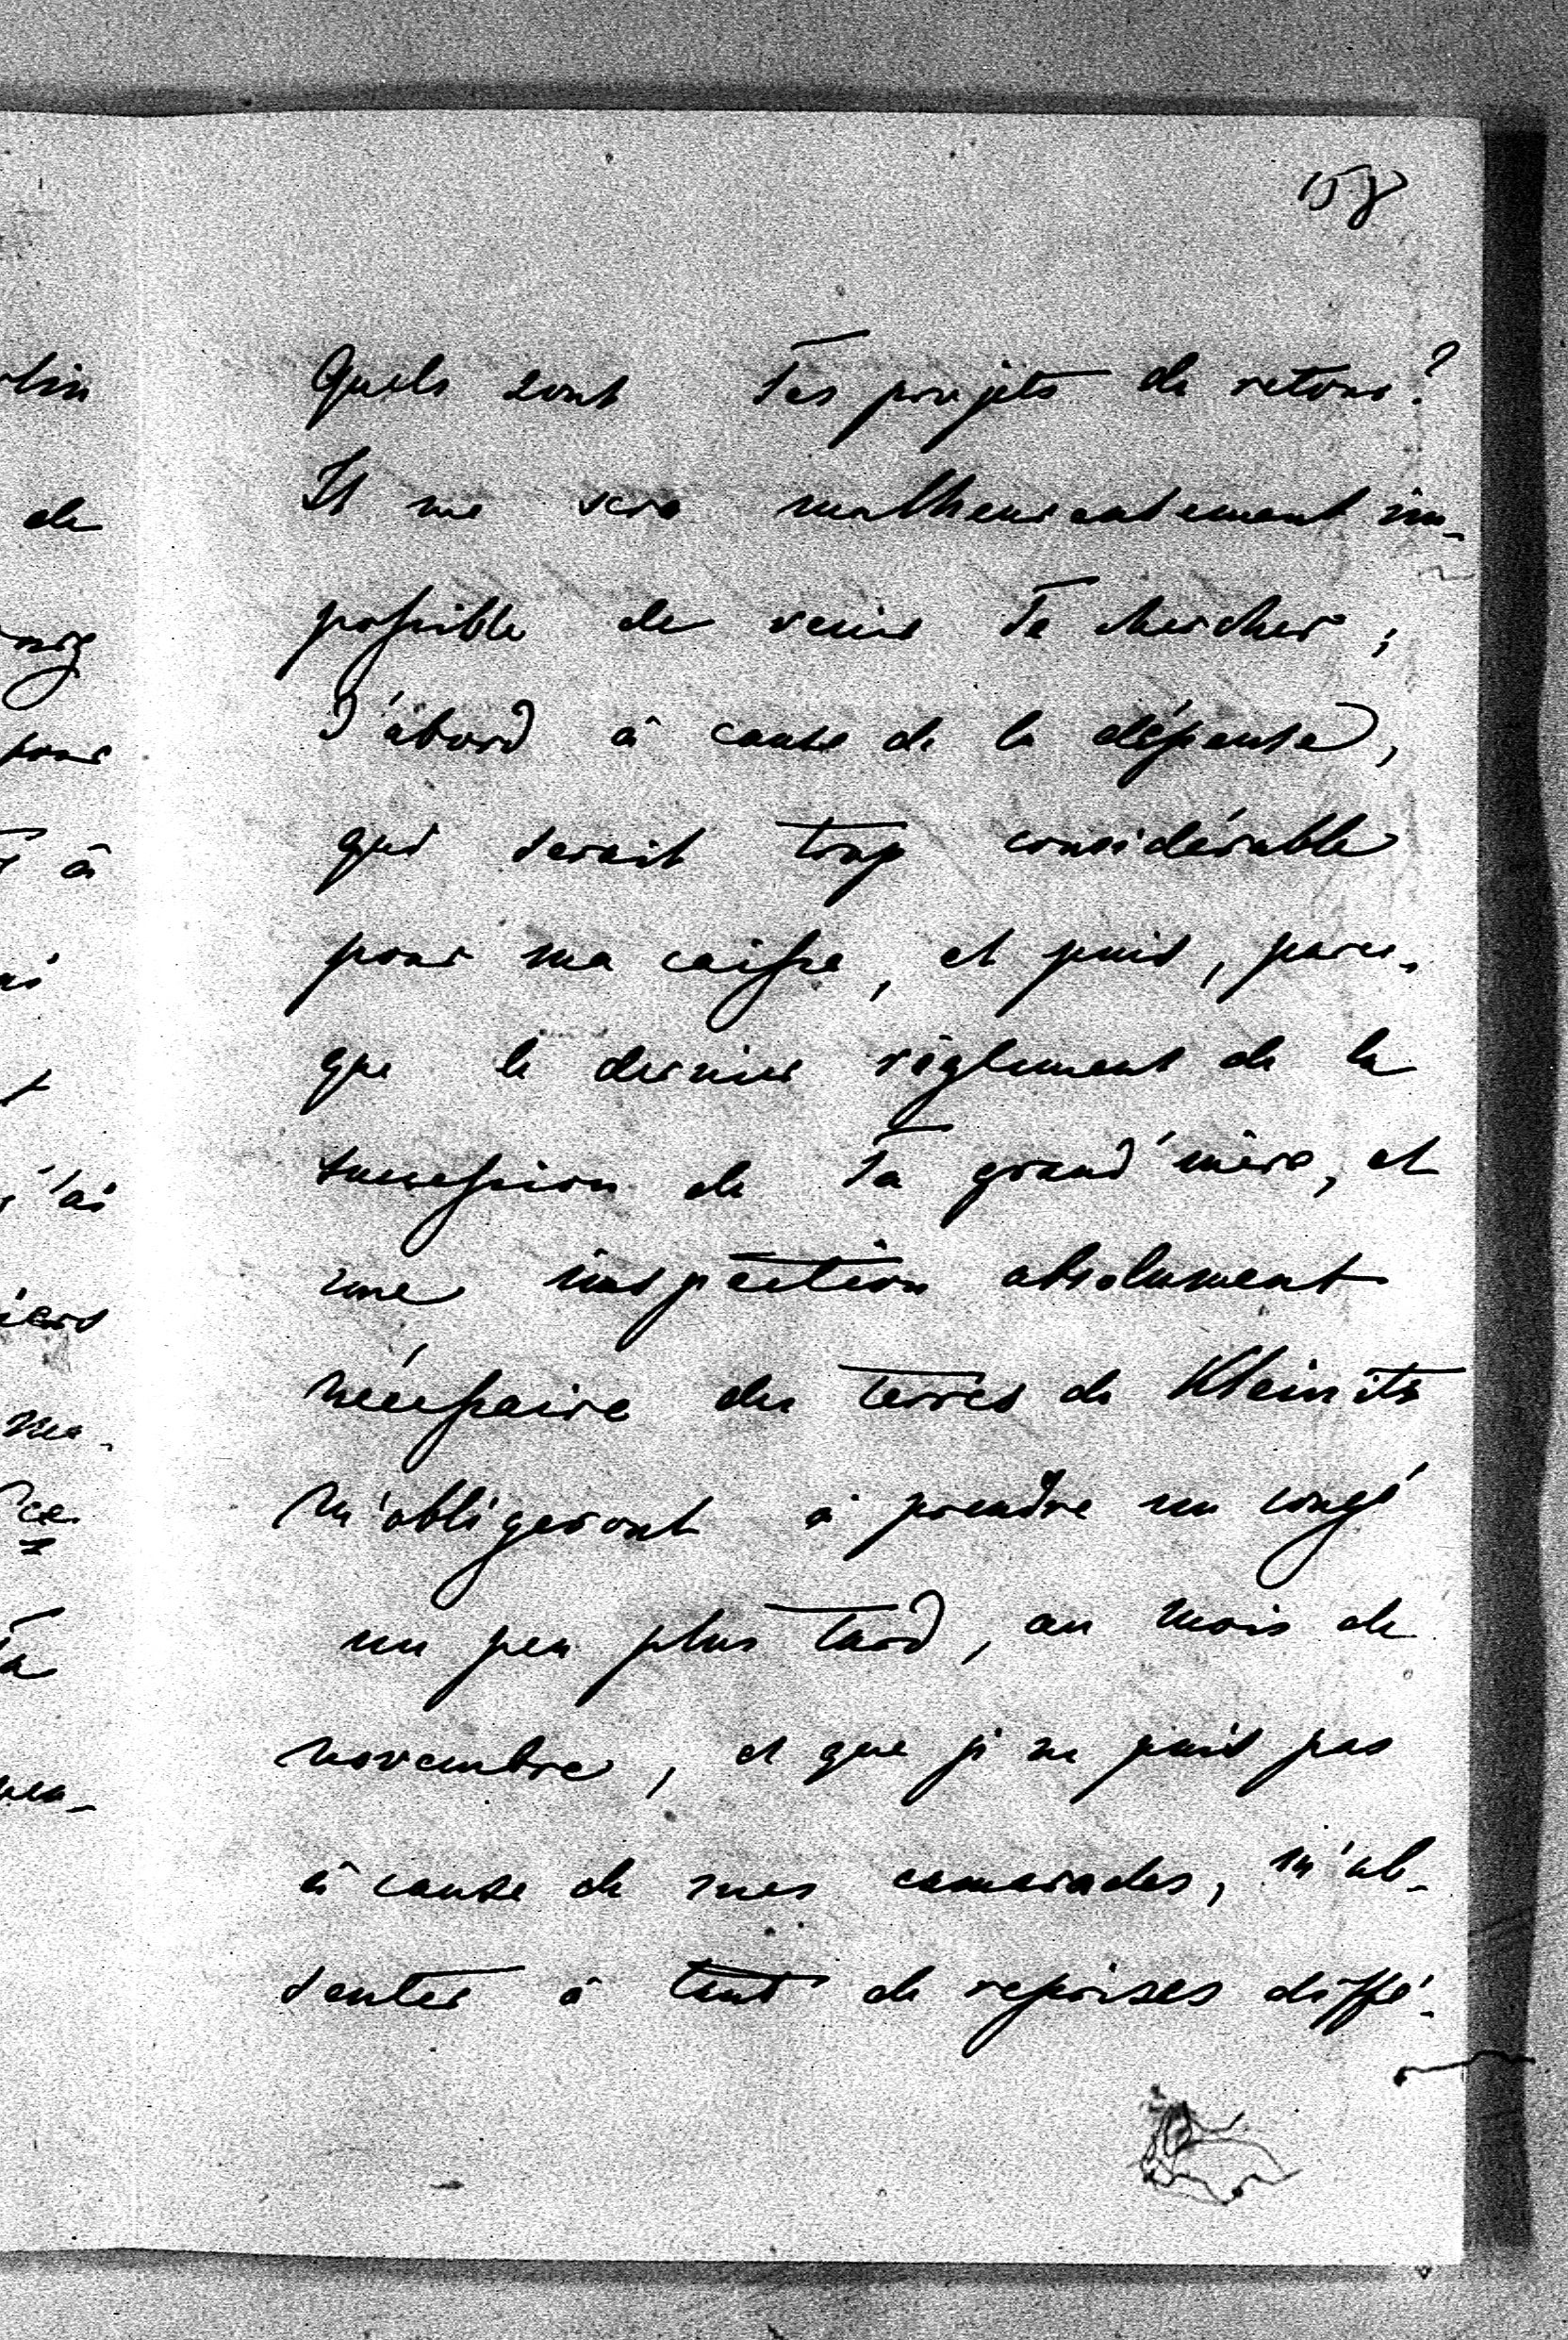 158
Quels sont Tes projets de retour?
Il me sera malheureusement im-
possible de venir Te chercher;
D'abord à cause de la dépense,
qui serait trop considérable
pour ma caisse, et puis, parce-
que le dernier règlement de la
succession de Ta grand'mère, et
une inspection absolument
nécessaire des terres de Kleinitz
m'obligeront à prendre un congé
un peu plus tard, au mois de
novembre, et que je ne puis pas
à cause de mes camarades, m'ab-
senter à tant de reprises diffé-